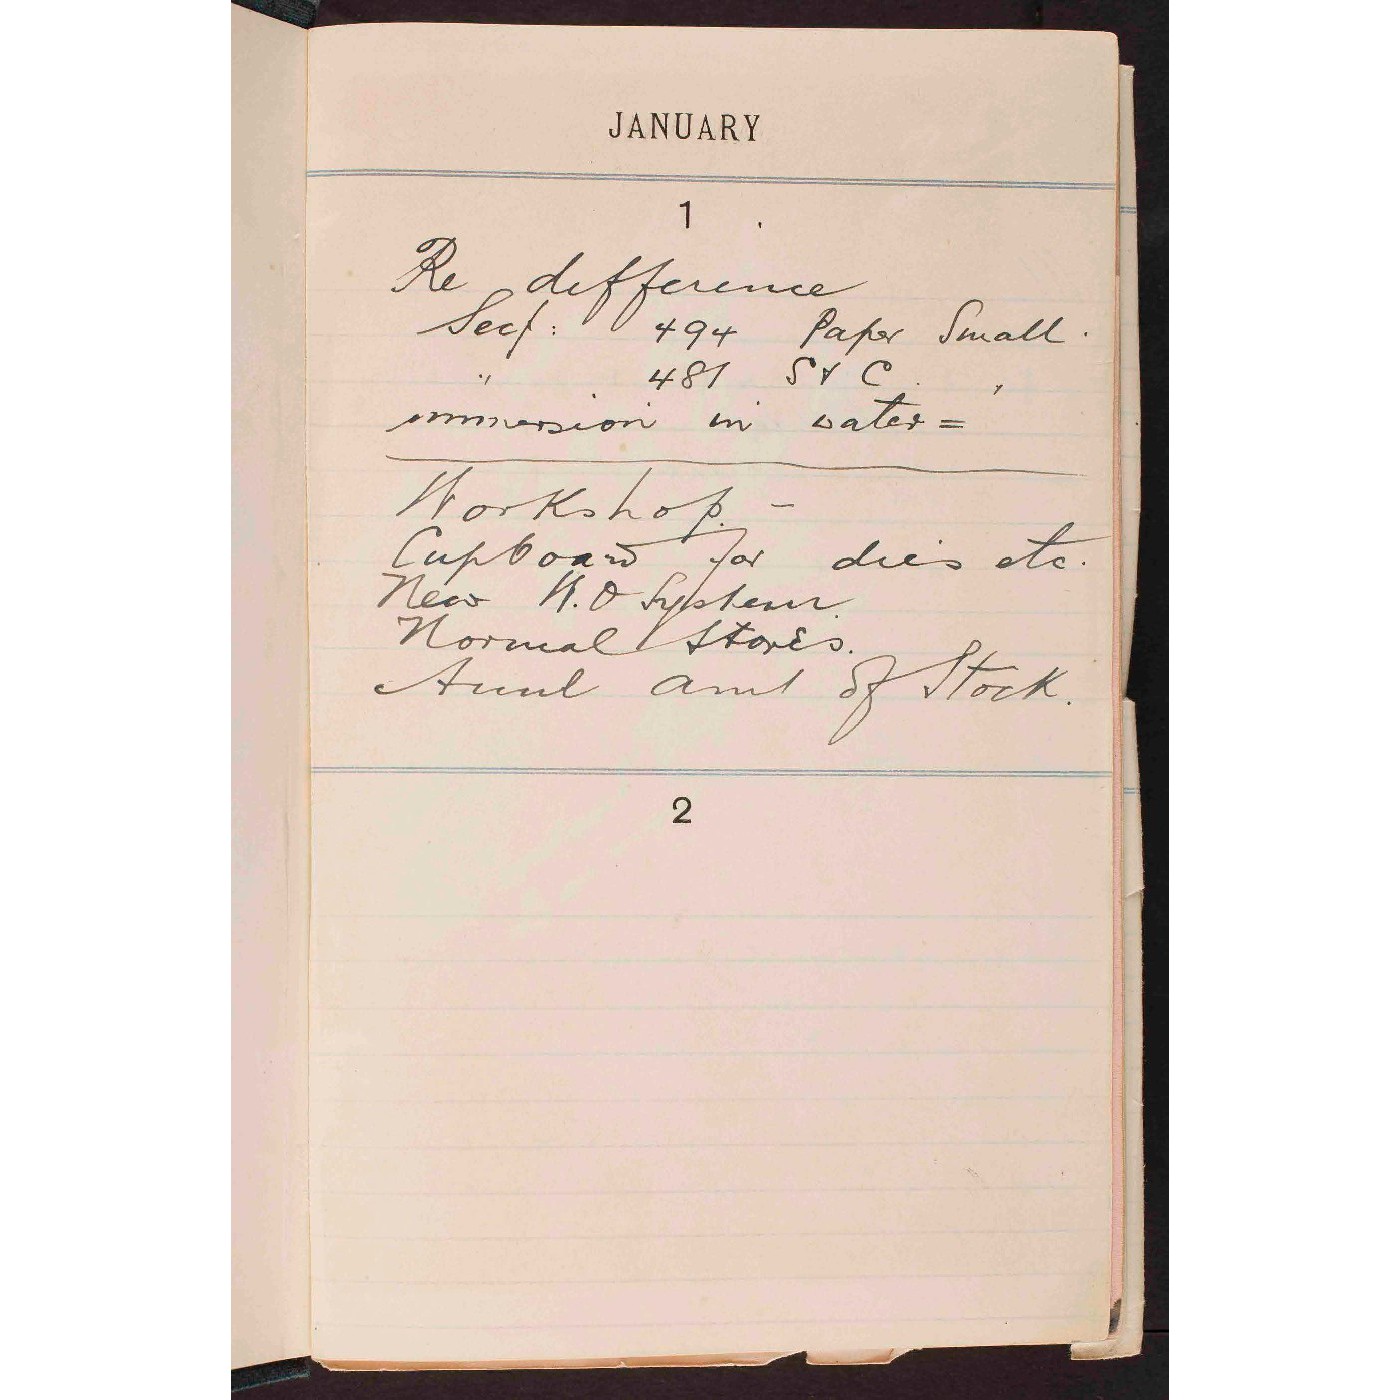 JANUARY
1
Re difference
Secf: 494 Paper Small.
" 481 S & C. "
immersion in water =
Workshop. -
Cupboard for dies etc.
New W.O System.
Normal Stores.
amt of Stock.
2